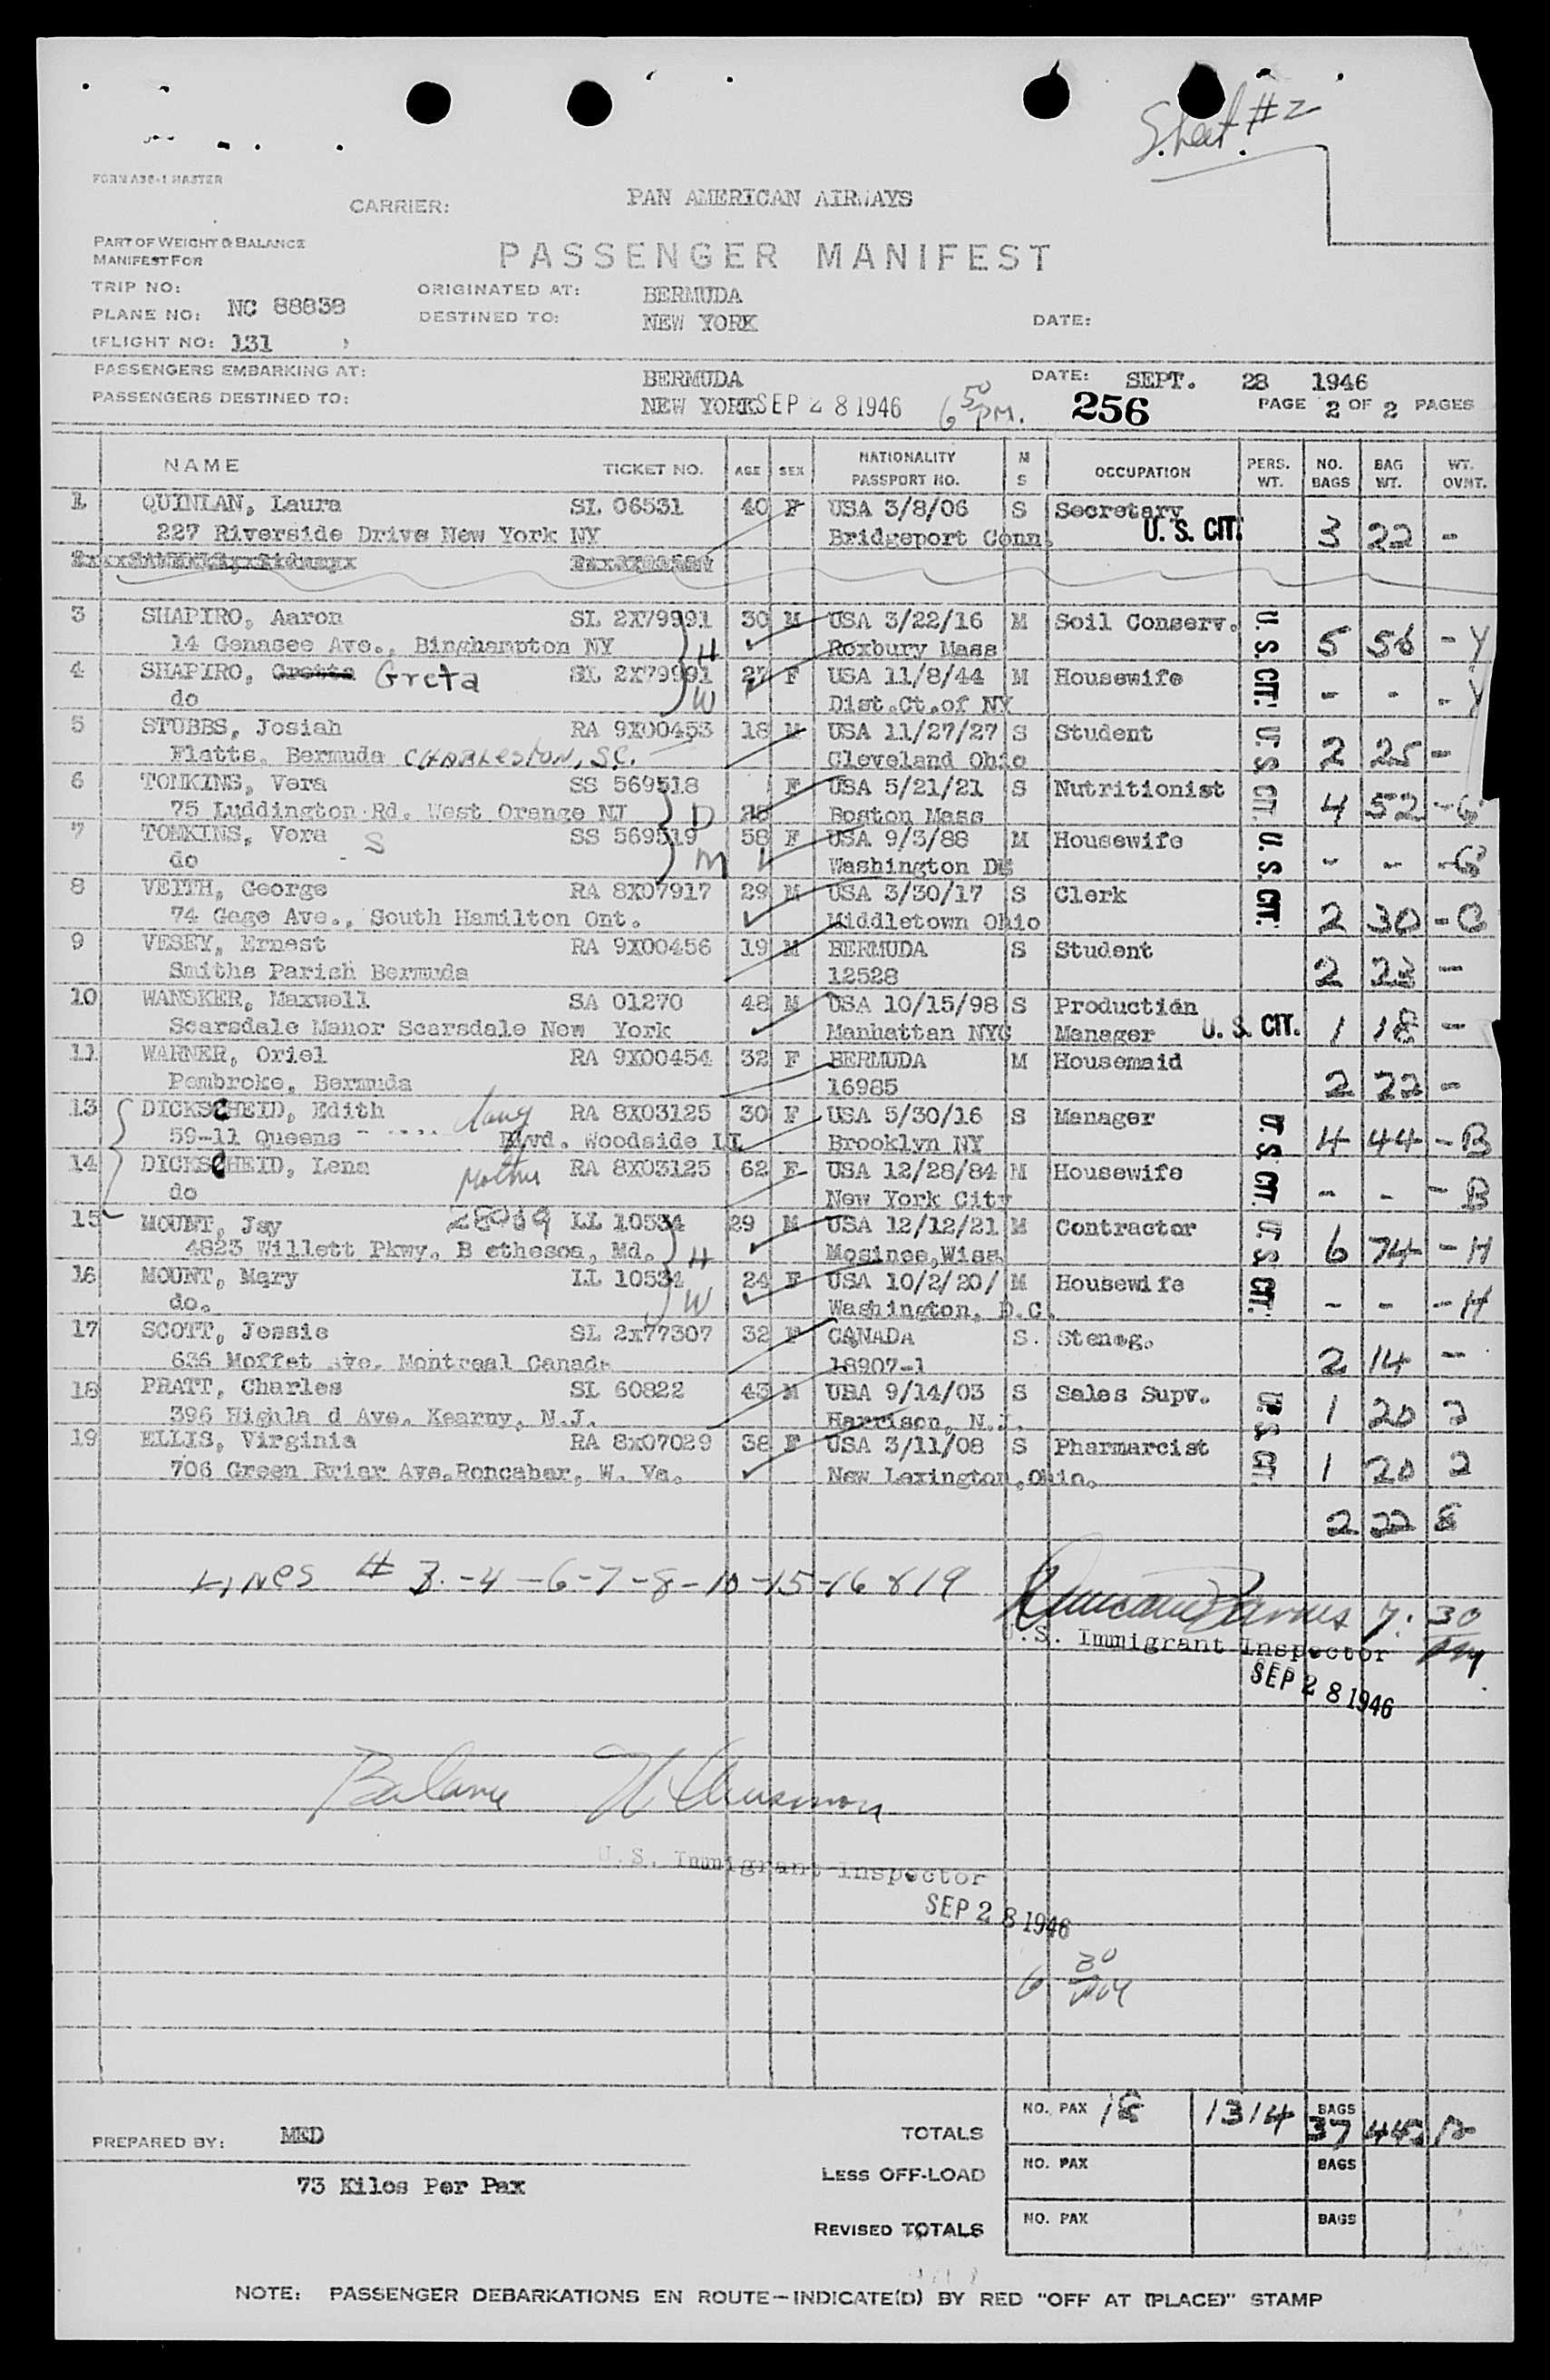 Sheet #2
FORM A36-1 MASTER
CARRIER: PAN AMERICAN AIRWAYS
PART OF WEIGHT & BALANCE
MANIFEST FOR
PASSENGER MANIFEST
TRIP NO:
ORIGINATED AT: BERMUDA
PLANE NO: NC 88838
DESTINED TO: NEW YORK
DATE:
(FLIGHT NO: 131 )
PASSENGERS EMBARKING AT: BERMUDA DATE: SEPT. 28 1946
PASSENGERS DESTINED TO: NEW YORK SEP 28 1946 6 50 PM. 256 PAGE 2 OF 2 PAGES
NAME TICKET NO. AGE SEX NATIONALITY PASSPORT NO. M S OCCUPATION PERS. WT. NO. BAGS BAG WT. WT. OVNT.
1 QUINLAN, Laura SL 06531 40 F USA 3/8/06 S Secretary
227 Riverside Drive New York NY Bridgeport Conn. U. S. CIT. 3 22 -
3 SHAPIRO, Aaron SL 2X79991 30 M USA 3/22/16 M Soil Conserv. U. S. CIT.
14 Genasee Ave., Binghampton NY H Roxbury Mass 5 56 - Y
4 SHAPIRO, Gretta Greta SL 2X79991 27 F USA 11/8/44 M Housewife
do W Dist.Ct.of NY - - - Y
5 STUBBS, Josiah RA 9X00453 18 M USA 11/27/27 S Student U. S. CIT.
Flatts, Bermuda CHARLESTON, SC. Cleveland Ohio 2 25 -
6 TOMKINS, Vera SS 569518 F USA 5/21/21 S Nutritionist
75 Luddington Rd. West Orange NJ D 25 Boston Mass 4 52 - G
7 TOMKINS, Vera S SS 569519 58 F USA 9/3/88 M Housewife U. S. CIT.
do M Washington DC - - - G
8 VEITH, George RA 8X07917 29 M USA 3/30/17 S Clerk
74 Gage Ave., South Hamilton Ont. Middletown Ohio 2 30 - C
9 VESEY, Ernest RA 9X00456 19 M BERMUDA S Student
Smiths Parish Bermuda 12528 2 23 -
10 WANSKER, Maxwell SA 01270 48 M USA 10/15/98 S Production
Scarsdale Manor Scarsdale New York Manhattan NYC Manager U. S. CIT. 1 18 -
11 WARNER, Oriel RA 9X00454 32 F BERMUDA M Housemaid
Pembroke, Bermuda 16985 2 22 -
13 DICKSCHEID, Edith RA 8X03125 30 F USA 5/30/16 S Manager U. S. CIT.
59-11 Queens Blvd. Woodside LI Brooklyn NY 4 44 - B
14 DICKSCHEID, Lena Mother RA 8X03125 62 F USA 12/28/84 M Housewife
do New York City - - - B
15 MOUNT, Jay LL 10534 29 M USA 12/12/21 M Contractor U. S. CIT.
4823 Willett Pkwy. B ethesoa, Md. H Mosinee,Wiss. 6 74 - H
16 MOUNT, Mary LL 10534 24 F USA 10/2/20/ M Housewife
do. W Washington, D.C. - - - H
17 SCOTT, Jessie SL 2x77307 32 F CANADA S. Stenog.
636 Moffet Ave. Montreal Canada 18907-1 2 14 -
18 PRATT, Charles SL 60822 43 M USA 9/14/03 S Sales Supv. U. S. CIT. 1 20 2
396 Highla d Ave. Kearny, N.J. Harrison, N.J.
19 ELLIS, Virginia RA 8x07029 38 F USA 3/11/08 S Pharmarcist 1 20 2
706 Green Briar Ave.Roncabar, W. Va. New Lexington,Ohio.
2 22 8
Lines # 3-4-6-7-8-10-15-16 & 19
7:30 PM
U.S. Immigrant Inspector
SEP 28 1946
Balance
U.S. Immigrant Inspector
SEP 28 1946
6 30 PM
TOTALS NO. PAX 18 1314 BAGS 37 442 12
PREPARED BY: MED
LESS OFF-LOAD NO. PAX BAGS
73 Kilos Per Pax
REVISED TOTALS NO. PAX BAGS
NOTE: PASSENGER DEBARKATIONS EN ROUTE—INDICATE(D) BY RED "OFF AT (PLACE)" STAMP